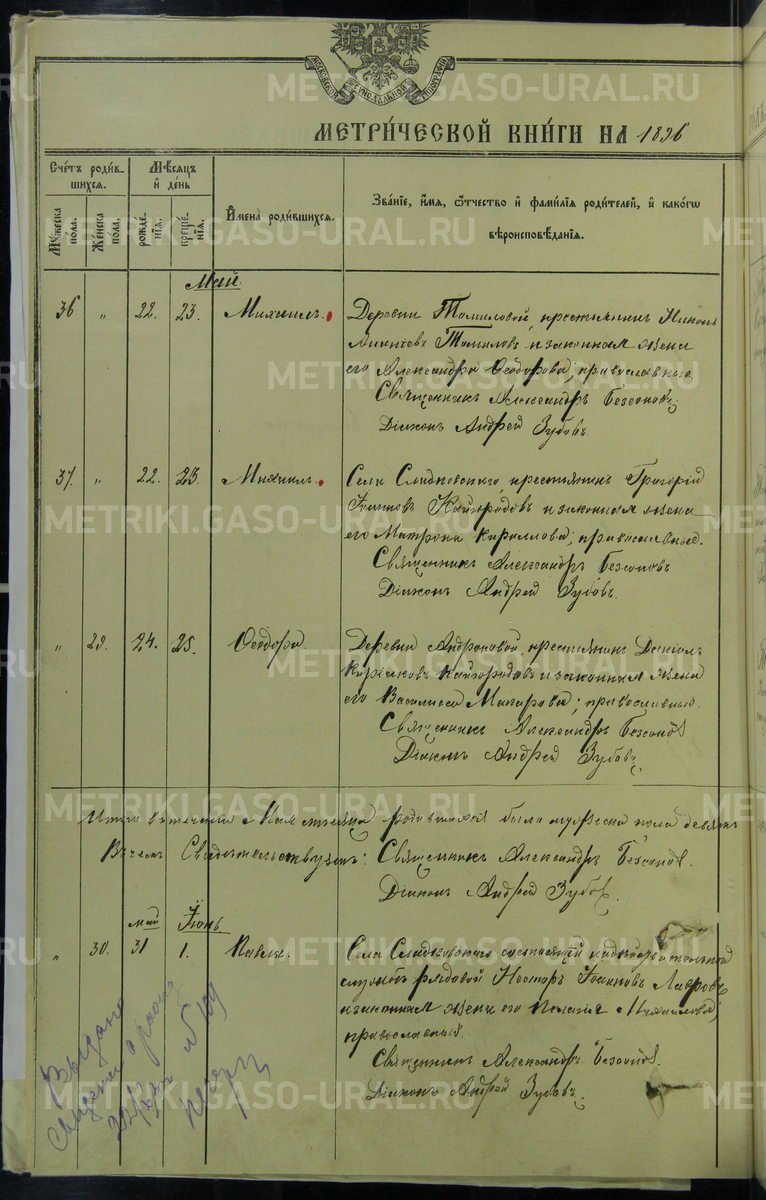 МОСКОВСКОЙ СѴНОДАЛЬНОЙ ТИПОГРАФІИ
МЕТРИ́ЧЕСКОЙ КНИ́ГИ НА 1896
Счéтъ роди́в-
шихся.
Мѣ́сяцъ
и҆ де́нь
И҆мена̀ роди́вшихся.
Зва́нїе, и҆́мя, ѻ҆́тчество и҆ фами́лїя роди́телей, и҆ како́гѡ
вѣроисповѣ́данїя.
Му́жеска по́ла.
Же́нска по́ла.
рожде́-нїя.
креще́-нїя.
Май.
36 " 22. 23. Михаилъ. Деревни Томиловой, крестьянинъ Никонъ
Томиловъ и законная жена
его Александра Ѳеодорова, православные
Священникъ Александръ Безсоновъ.
Діаконъ Андрей Зубовъ.
37. " 22. 23. Михаилъ. Села Сладковскаго, крестьянинъ Григорій
Кайгородовъ и законная жена
его Матрона Кириллова, православные.
Священникъ Александръ Безсоновъ
Діаконъ Андрей Зубовъ.
" 29. 24. 25. Ѳеодора Деревни Андроновой, крестьянинъ Даніилъ
Кайгородовъ и законная жена
его Василисса Макарова; православные.
Священникъ Александръ Безсоновъ
Діаконъ Андрей Зубовъ.
Итого въ теченіи Мая мѣсяца родившихся было мужеска пола девять
Въ чемъ Свидѣтельствуемъ: Священникъ Александръ Безсоновъ.
Діаконъ Андрей Зубовъ.
май Іюнь.
" 30. 31 1. Павла. Села Сладковскаго состоящій на дѣйствительной
службѣ рядовой Несторъ Іоанновъ Лавровъ
и законная жена его Пелагія Михаилова,
православные.
Священникъ Александръ Безсоновъ.
Діаконъ Андрей Зубовъ.
Выдано
METRIKI.GASO-URAL.RU